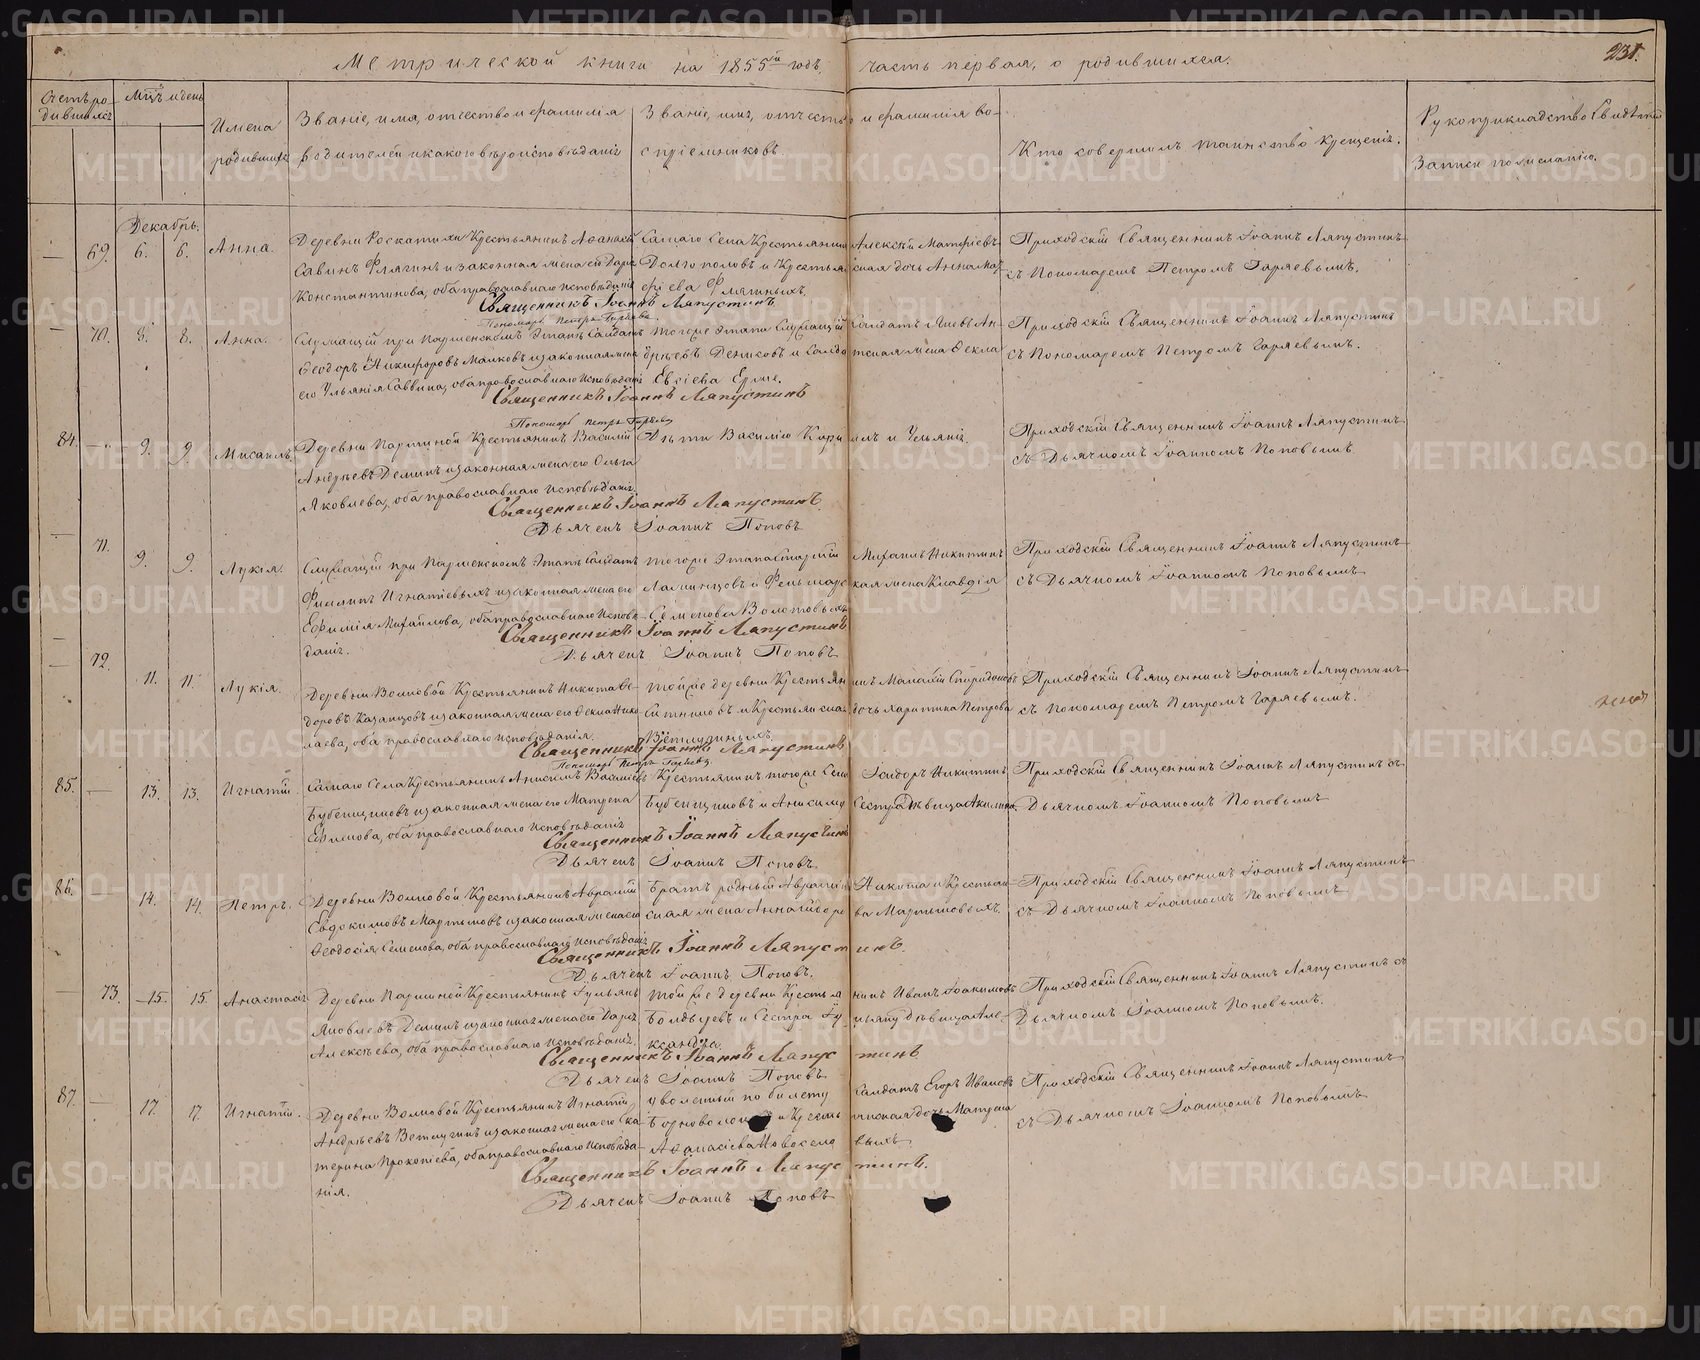 Метрической книги на 1855й годъ, часть первая, о родившихся.
231.
Счетъ ро-
дившихся
Мцъ и день
Имена
родившихся
Званіе, имя, отчество и фамилія
родителей и какого вѣроисповѣданія
Званіе, имя, отчество и фамилія во-
спріемниковъ
Кто совершилъ таинство крещенія.
Рукоприкладство свидѣтелей
записи по желанію.
Декабрь.
69. 6. 6. Анна.
Деревни Крестьянинъ Аѳанасій
Савинъ Флягинъ и законная жена его Дарья
Константинова, оба православнаго исповѣданія
Самаго Села Крестьянинъ Алексѣй Матѳіевъ
Долгополовъ и Крестьянская дочь Анна
Приходскій Священникъ Іоаннъ Ляпустинъ
съ Пономаремъ Петромъ Гаряевымъ.
Священникъ Іоаннъ Ляпустинъ
Пономарь Петръ Гаряевъ
70. 8. 8. Анна.
Служащій при Этапѣ Солдатъ
Ѳеодоръ Никифоровъ Малковъ и законная жена
его Ульянія Саввина, оба православнаго исповѣданія
тогоже этапа Служащій Солдатъ Ан-
дреевъ Денисовъ и Солдатская жена Ѳекла
Евсіева
Приходскій Священникъ Іоаннъ Ляпустинъ
съ Пономаремъ Петромъ Гаряевымъ.
Священникъ Іоаннъ Ляпустинъ
Пономарь Петръ Гаряевъ
84. 9. 9. Мисаилъ
Деревни Паршиной Крестьянинъ Василій
Андреевъ Деминъ и законная жена его Ольга
Яковлева, оба православнаго исповѣданія.
Дѣти Василію Кириллъ и Ульянія.
Приходскій Священникъ Іоаннъ Ляпустинъ
съ Дьячкомъ Іоанномъ Поповымъ.
Священникъ Іоаннъ Ляпустинъ.
Дьячекъ Іоаннъ Поповъ
71. 9. 9. Лукія.
Служащій при Этапѣ Солдатъ
Филиппъ Игнатіевыхъ и законная жена его
Ефимія Михайлова, оба православнаго исповѣ-
данія.
тогоже Этапа Старшій Михаилъ Никитинъ
и Фельдшерская жена Клавдія
Семенова Болотовыхъ
Приходскій Священникъ Іоаннъ Ляпустинъ
съ Дьячкомъ Іоанномъ Поповымъ
Священникъ Іоаннъ Ляпустинъ
Дьячекъ Іоаннъ Поповъ
72. 11. 11. Лукія.
Деревни Волковой Крестьянинъ Никита Ѳе-
доровъ Казанцовъ и законная жена его Ѳекла Нико-
лаева, оба православнаго исповѣданія.
тойже деревни Крестьянинъ Спиридоновъ
Ситниковъ и Крестьянская дочь Харитина Петрова
Ветлугиныхъ.
Приходскій Священникъ Іоаннъ Ляпустинъ
съ Пономаремъ Петромъ Гаряевымъ.
Священникъ Іоаннъ Ляпустинъ
Пономарь Петръ Гаряевъ
85. 13. 13. Игнатій
Самаго Села Крестьянинъ Анисимъ Васильевъ
Бубенщиковъ и законная жена его Матрена
Ефимова, оба православнаго исповѣданія
Крестьянинъ тогоже Села Ісидоръ Никитинъ
Бубенщиковъ и Анисима Сестра Дѣвица Акилина.
Приходскій Священникъ Іоаннъ Ляпустинъ съ
Дьячкомъ Іоанномъ Поповымъ
Священникъ Іоаннъ Ляпустинъ
Дьячекъ Іоаннъ Поповъ
86. 14. 14. Петръ.
Деревни Волковой Крестьянинъ Аврамій
Евдокимовъ Мартюшовъ и законная жена его
Ѳеодосія Семенова, оба православнаго исповѣданія
Братъ родный Аврамія Никита и Крестьян-
ская жена Анна Мартюшовыхъ.
Приходскій Священникъ Іоаннъ Ляпустинъ
съ Дьячкомъ Іоанномъ Поповымъ
Священникъ Іоаннъ Ляпустинъ.
Дьячекъ Іоаннъ Поповъ.
73. 15. 15. Анастасія
Деревни Паршиной Крестьянинъ Іульянъ
Яковлевъ Деминъ и законная жена его Дарья
Алексѣева, оба православнаго исповѣданія.
тойже деревни Крестьянинъ Иванъ Іоакимовъ
Болдыревъ и Сестра Іульяну дѣвица Але-
ксандра.
Приходскій Священникъ Іоаннъ Ляпустинъ съ
Дьячкомъ Іоанномъ Поповымъ.
Священникъ Іоаннъ Ляпустинъ
Дьячекъ Іоаннъ Поповъ
87. 17. 17. Игнатій.
Деревни Волковой Крестьянинъ Игнатій
Андреевъ Ветлугинъ и законная жена его Ека-
терина Прокопіева, оба православнаго исповѣда-
нія.
уволенный по билету Солдатъ Егоръ Ивановъ
и Крестьянская дочь Матрена
Аѳанасіева Новоселовыхъ
Приходскій Священникъ Іоаннъ Ляпустинъ
съ Дьячкомъ Іоанномъ Поповымъ
Священникъ Іоаннъ Ляпустинъ.
Дьячекъ Іоаннъ Поповъ
METRIKI.GASO-URAL.RU